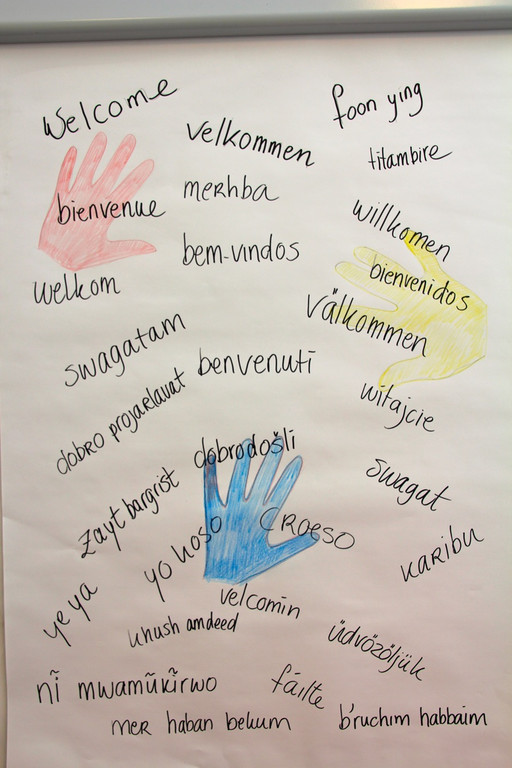 Welcome
foon ying
velkommen
titambire
bienvenue
merhba
willkomen
bem-vindos
bienvenidos
welkom
Välkommen
swagatam
benvenuti
witajcie
dobro projarlavat
dobrodošli
swagat
zayt bargrist
yo koso
CROESO
KARibu
ye ya
velcomin
khush amdeed
üdvözöljük
nĩ mwamũkĩrwo
fáilte
mer haban bekum
b'ruchim habbaim